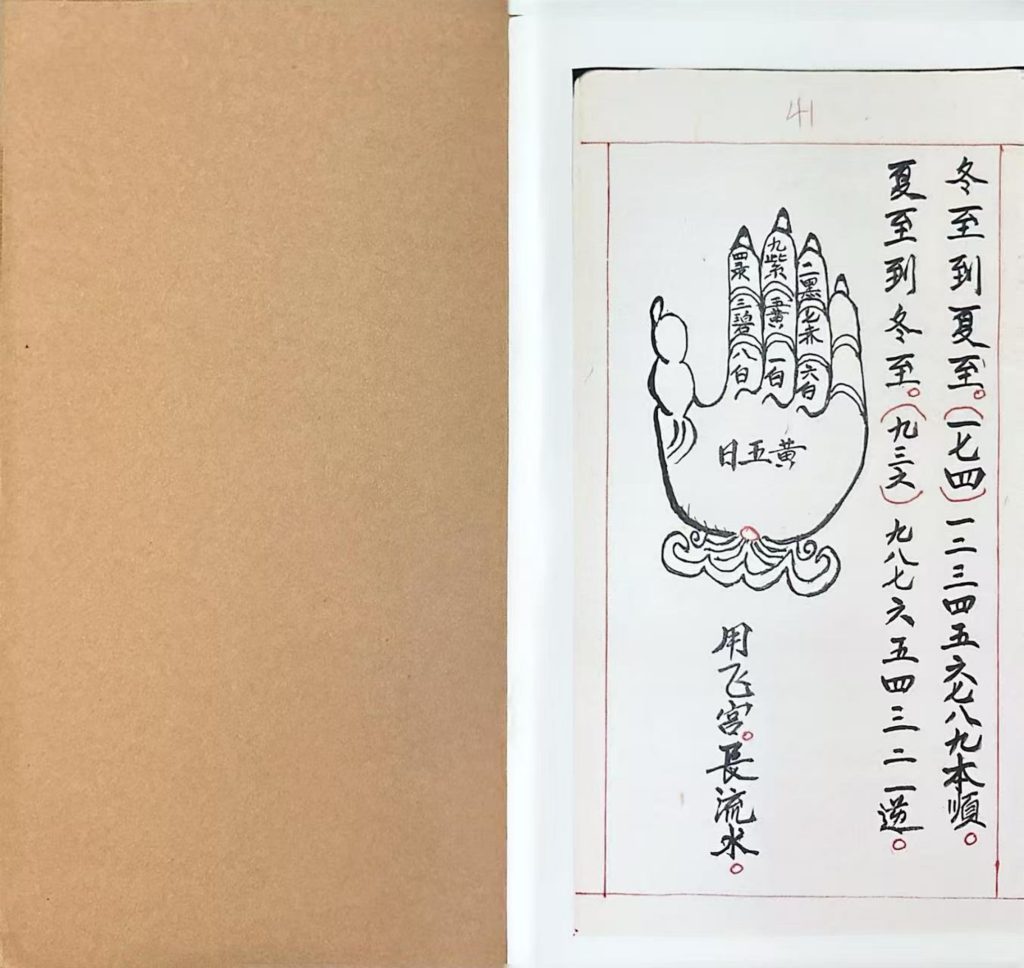 41
冬至到夏至。(一七四)一二三四五六七八九本順。
夏至到冬至。(九三六)九八七六五四三二一逆。
二墨 七赤 六白
九紫 五黄 一白
四录 三碧 八白
黄五日
用飞宫。長流水。